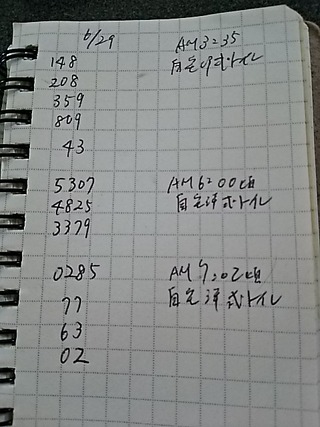 6/29
AM3:35
自宅洋式トイレ
148
208
359
809
43
AM6:00頃
自宅洋式トイレ
5307
4825
3379
AM7:02頃
自宅洋式トイレ
0285
77
63
02